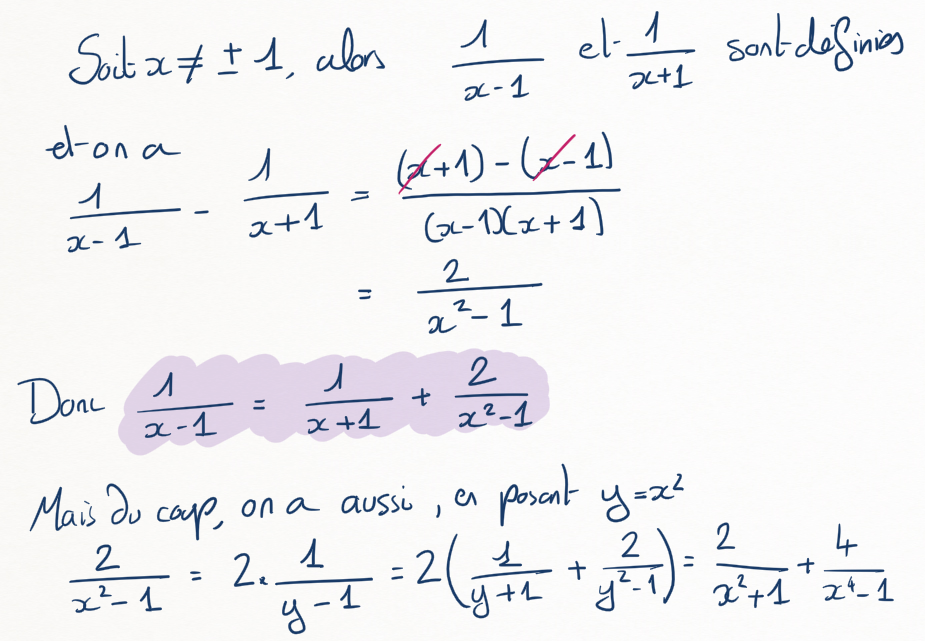 Soit x ≠ ± 1, alors 1/(x-1) et 1/(x+1) sont définies
et on a
1/(x-1) - 1/(x+1) = ((x+1) - (x-1))/((x-1)(x+1))
= 2/(x²-1)
Donc 1/(x-1) = 1/(x+1) + 2/(x²-1)
Mais du coup, on a aussi, en posant y=x²
2/(x²-1) = 2 · 1/(y-1) = 2(1/(y+1) + 2/(y²-1)) = 2/(x²+1) + 4/(x⁴-1)